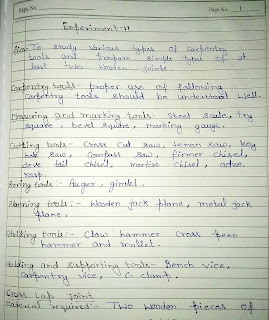 Page No.
Page No. 1
Experiment-11
Aim- To study various types of carpentry
tools and prepare simple types of at
least two wooden joints
Carpentry tools- proper use of following
carpentry tools should be understood well.
Measuring and marking tools- Steel scale, try
square, bevel square, marking gauge.
Cutting tools- Cross cut saw, tenon saw, key
hole saw, compass saw, firmer chisel,
dove tail chisel, mortise chisel, adze,
rasp.
Boring tools:- Auger, gimlet.
Planning tools:- Wooden jack plane, metal jack
plane.
Striking tools:- Claw hammer Cross peen
hammer and mallet.
Holding and supporting tools- Bench vice,
carpentry vice, G-clamp.
Cross Lap joint
Material required:- Two wooden pieces of